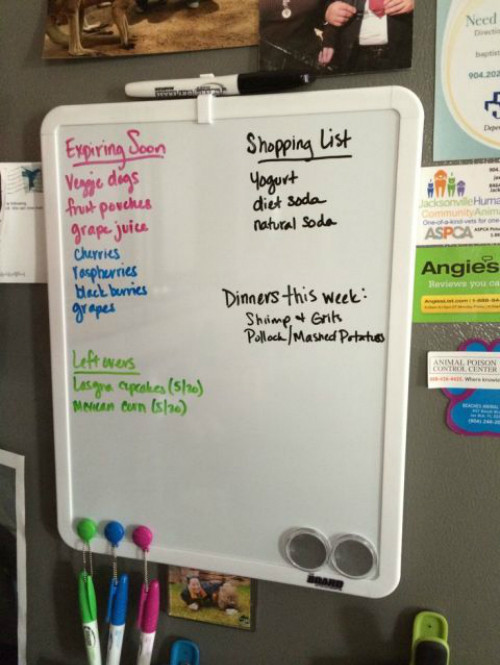 Expiring Soon
Veggie dogs
fruit pouches
grape juice
cherries
raspberries
blackberries
grapes
Leftovers
Lasgna cupcakes (5/30)
Mexican corn (5/30)
Shopping List
Yogurt
diet soda
natural soda
Dinners this week:
Shrimp & Grits
Pollock/Mashed Potatoes
BOARD
Need
904.202
Jacksonville Huma
Community Anim
One-of-a-kind vets for one
ASPCA
Angies
Reviews you ca
ANIMAL POISON
CONTROL CENTER